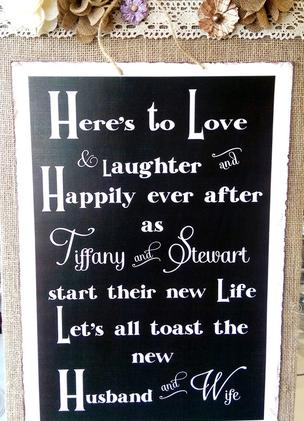 Here's to Love
& Laughter and
Happily ever after
as
Tiffany and Stewart
start their new Life
Let's all toast the
new
Husband and Wife